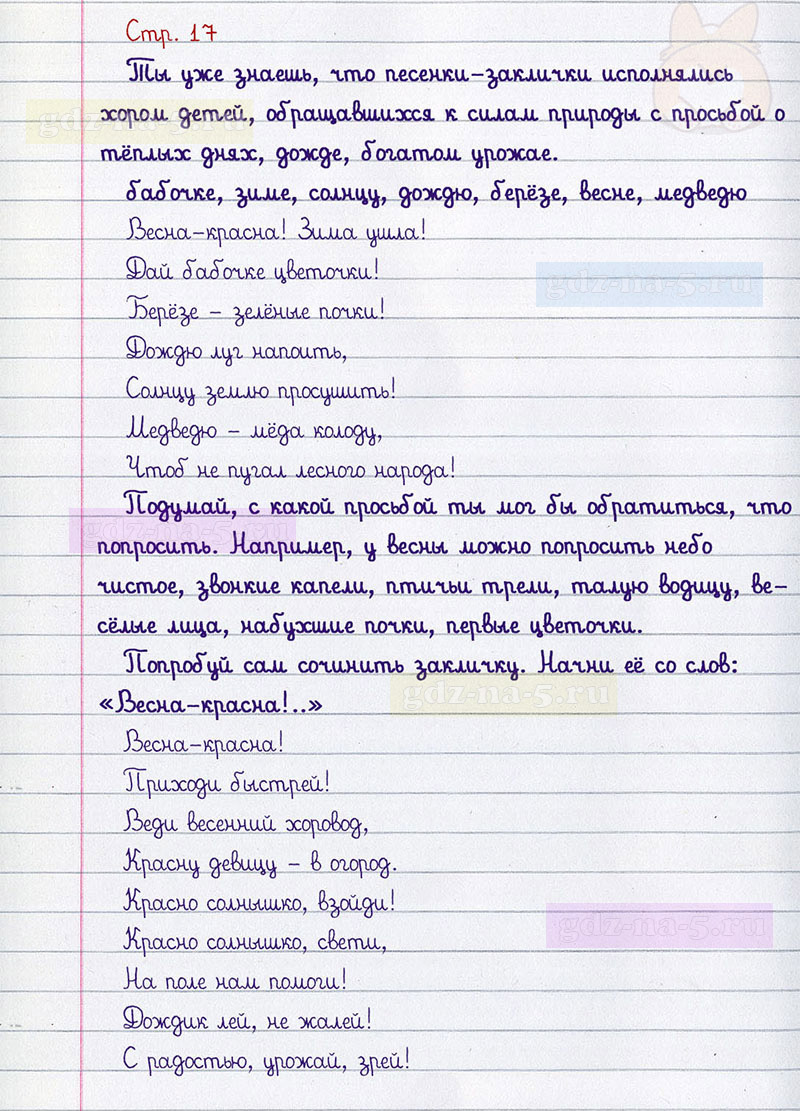 Стр. 17
Ты уже знаешь, что песенки-заклички исполнялись
хором детей, обращавшихся к силам природы с просьбой о
тёплых днях, дожде, богатом урожае.
бабочке, зиме, солнцу, дождю, берёзе, весне, медведю
Весна-красна! Зима ушла!
Дай бабочке цветочки!
Берёзе – зелёные почки!
Дождю луг напоить,
Солнцу землю просушить!
Медведю – мёда колоду,
Чтоб не пугал лесного народа!
Подумай, с какой просьбой ты мог бы обратиться, что
попросить. Например, у весны можно попросить небо
чистое, звонкие капели, птичьи трели, талую водицу, ве-
сёлые лица, набухшие почки, первые цветочки.
Попробуй сам сочинить закличку. Начни её со слов:
«Весна-красна!..»
Весна-красна!
Приходи быстрей!
Веди весенний хоровод,
Красну девицу – в огород.
Красно солнышко, взойди!
Красно солнышко, свети,
На поле нам помоги!
Дождик лей, не жалей!
С радостью, урожай, зрей!
gdz-na-5.ru
gdz-na-5.ru
gdz-na-5.ru
gdz-na-5.ru
gdz-na-5.ru